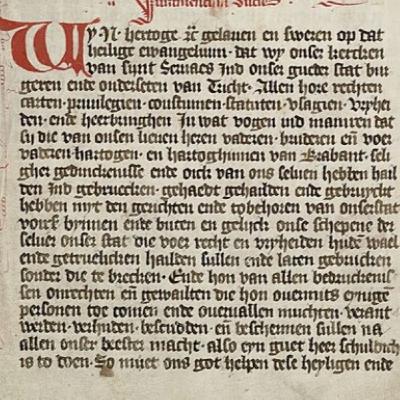 Juramentum ducis
Wy N. hertoge etc gelauen en sweren op dat
heilige ewangelium. dat wy onser kercken
van sunt Seruaes Ind onser gueder stat bur
geren ende onderseten van Tricht. Allen hore rechten
carten. priuilegien. coustumen. statuten. vsagien. vryhei
den. ende heerbringhen In wat vogen ind maniren dat
sy die van onsen lieuen heren vaderen. bruderen en voer
vaderen. hartogen. en hartoghinnen van Brabant. seli
gher gedunckenisse ende oick van ons seluen hebben hail
den Ind gebruecken. gehaedt gehailden ende gebruyckt
hebben myt den geruchten ende tobehoren van onser stat
voirß bynnen ende buten en gelych onse schepene der
seluer onser stat die voer recht en vryheiden hude wael
ende getruelicken hailden sullen ende laten gebruicken
sonder die te brecken. Ende hon van allen bedruckenis
sen onrechten en gewailten die hon ouermits eynige
personen toe comen ende oueruallen muchten. verant
werden. verhuden. bescudden. en beschermen sullen na
allen onser bester macht. also eyn guet heer schuldich
is to doen. So muet ons got helpen dese heyligen ende